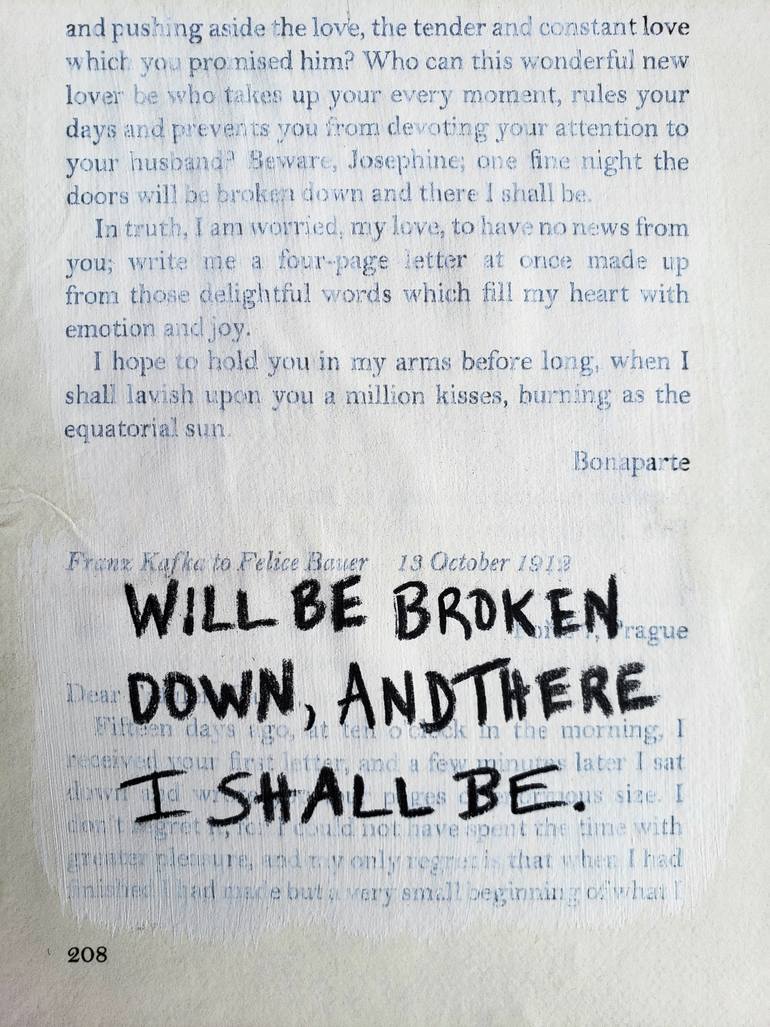 and pushing aside the love, the tender and constant love
which you promised him? Who can this wonderful new
lover be who takes up your every moment, rules your
days and prevents you from devoting your attention to
your husband? Beware, Josephine; one fine night the
doors will be broken down and there I shall be.
In truth, I am worried, my love, to have no news from
you; write me a four-page letter at once made up
from those delightful words which fill my heart with
emotion and joy.
I hope to hold you in my arms before long, when I
shall lavish upon you a million kisses, burning as the
equatorial sun.
Bonaparte
Franz Kafka to Felice Bauer 13 October 1912
WILL BE BROKEN
Prague
DOWN, AND THERE
Dear
Fifteen days ago, at ten o'clock in the morning, I
received your first letter, and a few minutes later I sat
I SHALL BE.
down and wrote pages of enormous size. I
don't regret it, for I could not have spent the time with
greater pleasure, and my only regret is that when I had
finished I had made but a very small beginning of what I
208